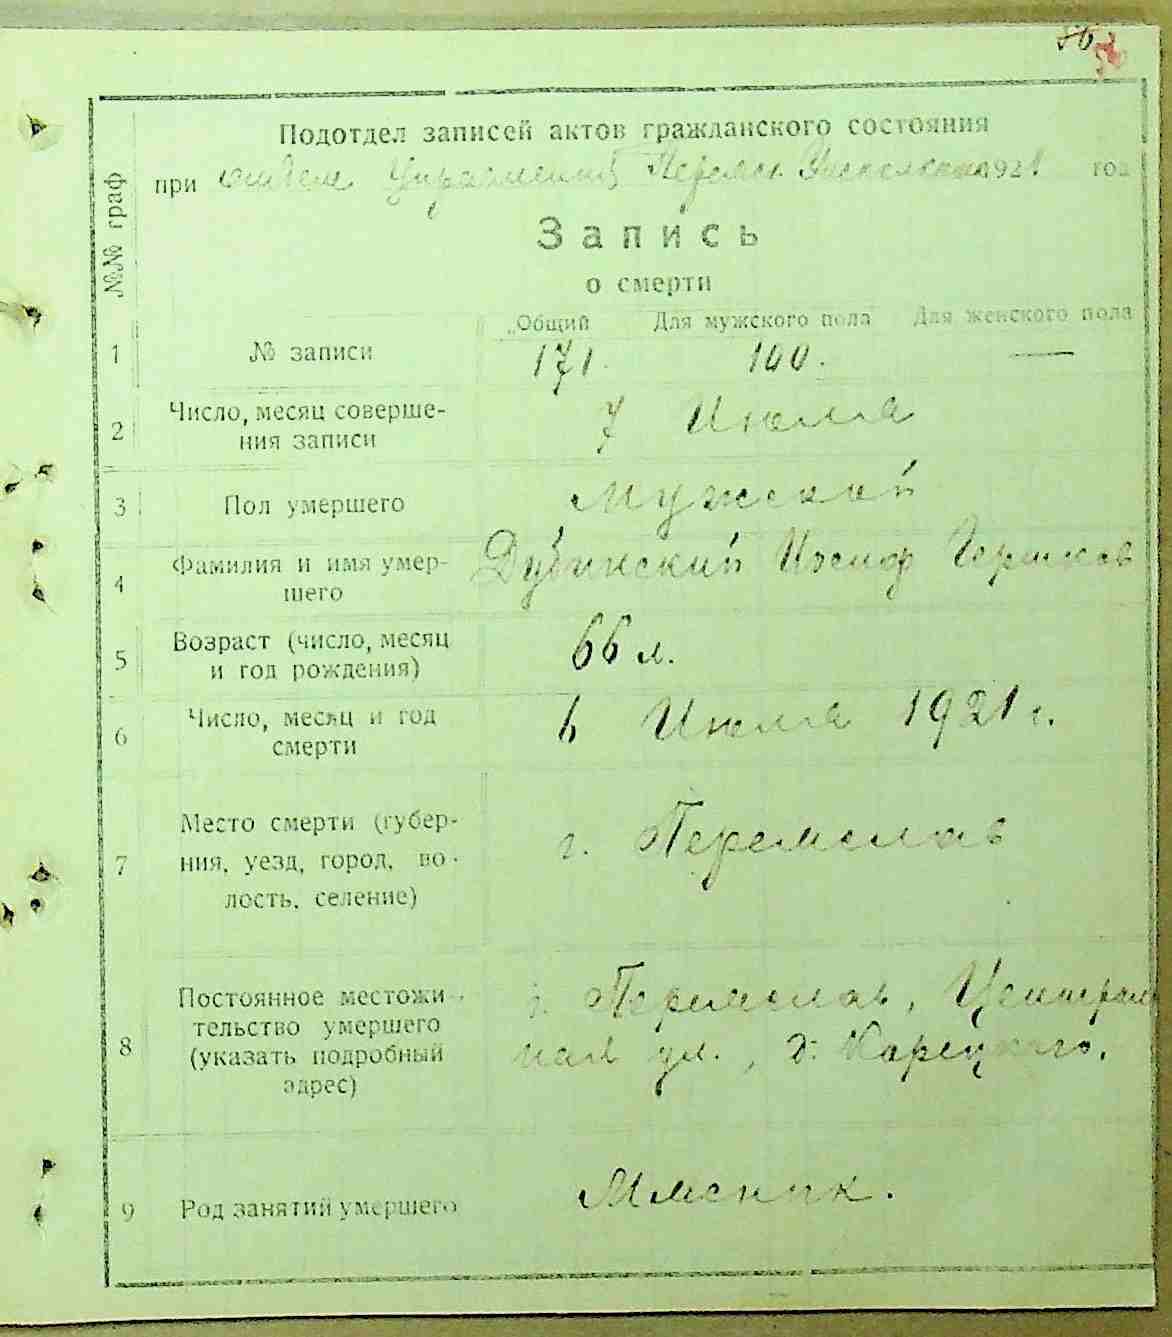 Подотдел записей актов гражданского состояния
при отделе Управления Переясл. Исполкома 1921 год
№№ граф
Запись
о смерти
Общий Для мужского пола Для женского пола
1 № записи 171. 100. —
2 Число, месяц соверше-
ния записи 7 Июля
3 Пол умершего Мужской
4 Фамилия и имя умер-
шего Дубинский Иосиф Гершков
5 Возраст (число, месяц
и год рождения) 66 л.
6 Число, месяц и год
смерти 6 Июля 1921 г.
7 Место смерти (губер-
ния, уезд, город, во-
лость, селение) г. Переяслав
8 Постоянное местожи-
тельство умершего
(указать подробный
адрес) г. Переяслав, Централь
ная ул., д. Карецкого.
9 Род занятий умершего Мясник.